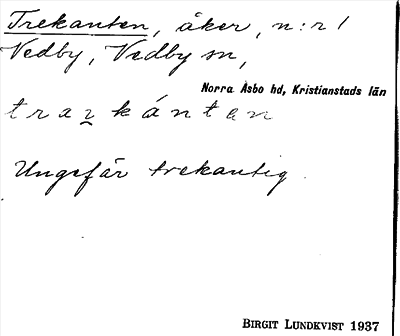 Trekanten, åker, n:r 1
Vedby, Vedby sn,
Norra Åsbo hd, Kristianstads län
traι̯kánten
Ungefär trekantig
BIRGIT LUNDKVIST 1937